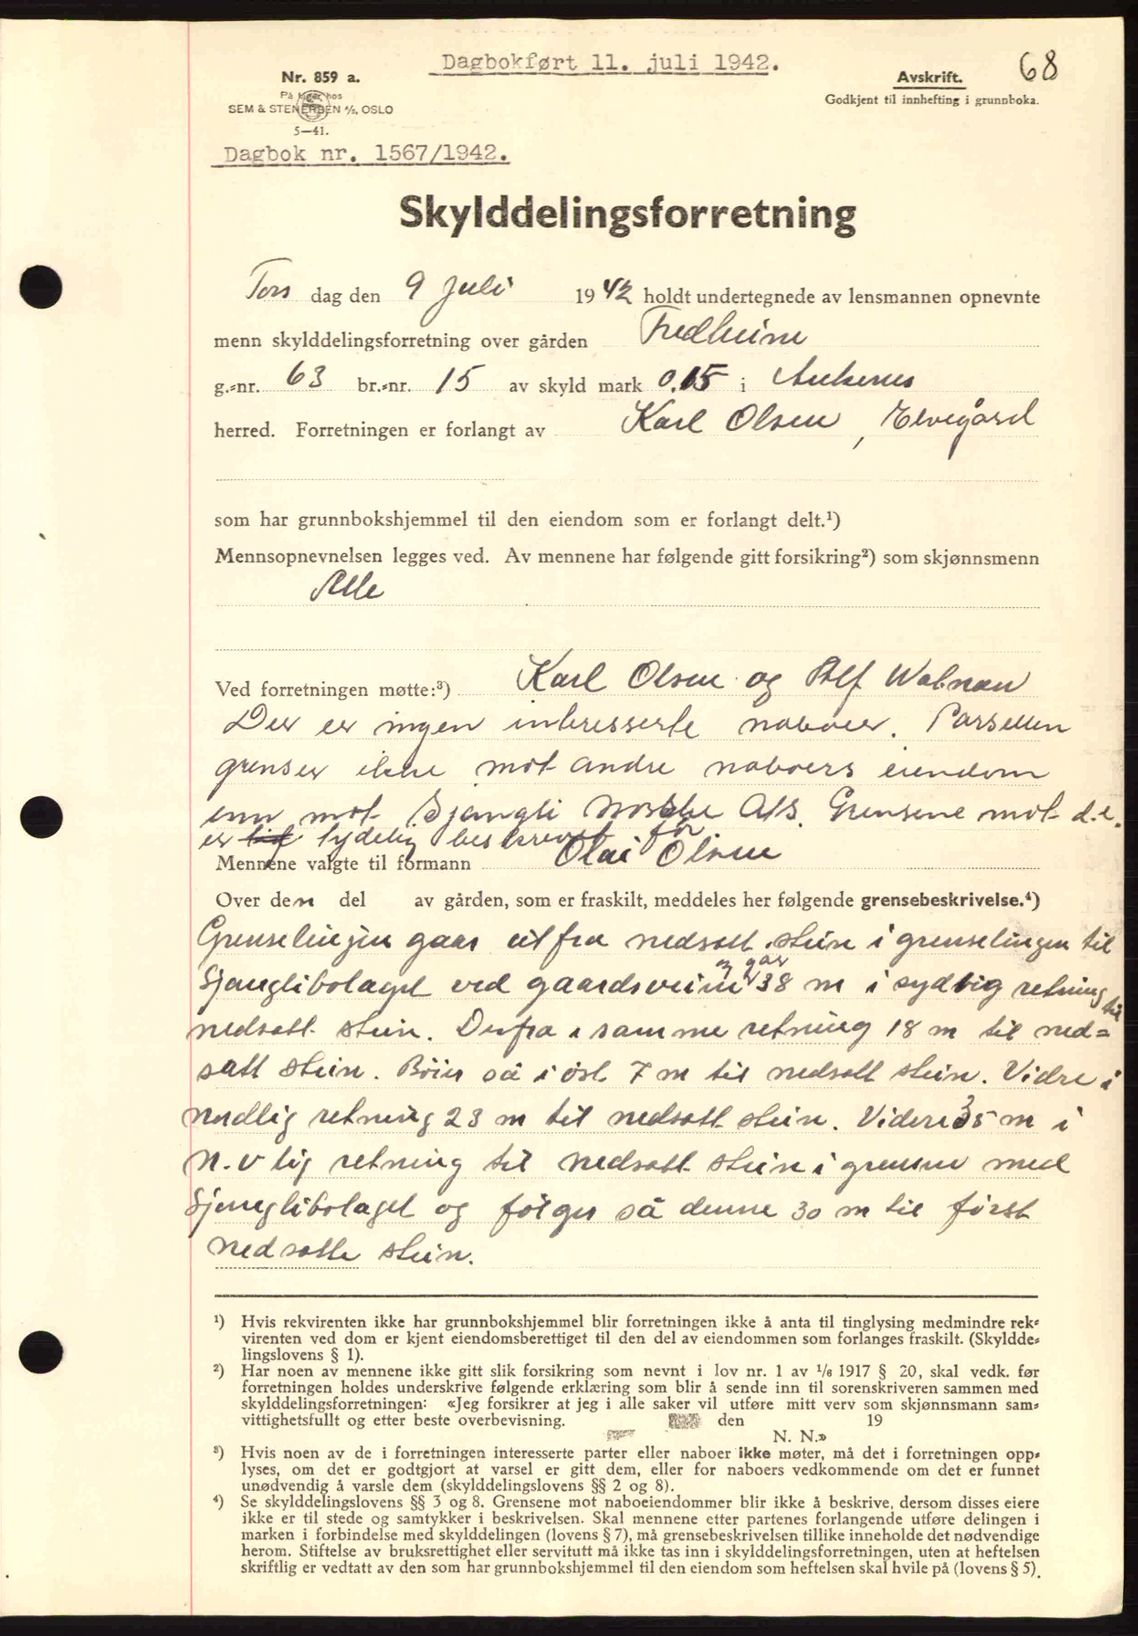 68
Dagbokført 11. juli 1942.
Nr. 859 a.
På lager hos
SEM & STENERSEN A/S, OSLO
5—41.
Avskrift.
Godkjent til innhefting i grunnboka.
Dagbok nr. 1567/1942.
Skylddelingsforretning
Tors dag den 9 juli 1942 holdt undertegnede av lensmannen opnevnte
menn skylddelingsforretning over gården Fredheim
g.-nr. 63 br.-nr. 15 av skyld mark 0.15 i Ankenes
herred. Forretningen er forlangt av Karl Olsen, Elvegård
som har grunnbokshjemmel til den eiendom som er forlangt delt.¹)
Mennsopnevnelsen legges ved. Av mennene har følgende gitt forsikring²) som skjønnsmenn
Alle
Ved forretningen møtte:³) Karl Olsen og Alf
Der er ingen interesserte naboer. Parsellen
grenser ikke mot andre naboers eiendom
enn mot Sjangli Norske A/S. Grensene mot d.e.
er tydelig beskrevet før
Mennene valgte til formann Olai Olsen
Over den del av gården, som er fraskilt, meddeles her følgende grensebeskrivelse.⁴)
Grenselinjen gaar ut fra nedsatt stein i grenselingen til
Sjanglibolaget ved gaardsveien og går 38 m i sydlig retning til
nedsatt stein. Derfra i samme retning 18 m til ned=
satt stein. Böier så i öst 7 m til nedsatt stein. Vidre i
nordlig retning 23 m til nedsatt stein. Videre 35 m i
N.v lig retning til nedsatt stein i grensen med
Sjanglibolaget og følger så denne 30 m til först
nedsatte stein.
¹) Hvis rekvirenten ikke har grunnbokshjemmel blir forretningen ikke å anta til tinglysing medmindre rek-
virenten ved dom er kjent eiendomsberettiget til den del av eiendommen som forlanges fraskilt. (Skyldde-
lingslovens § 1).
²) Har noen av mennene ikke gitt slik forsikring som nevnt i lov nr. 1 av 1/6 1917 § 20, skal vedk. før
forretningen holdes underskrive følgende erklæring som blir å sende inn til sorenskriveren sammen med
skylddelingsforretningen: «Jeg forsikrer at jeg i alle saker vil utføre mitt verv som skjønnsmann sam-
vittighetsfullt og etter beste overbevisning. den 19
N. N.»
³) Hvis noen av de i forretningen interesserte parter eller naboer ikke møter, må det i forretningen opp-
lyses, om det er godtgjort at varsel er gitt dem, eller for naboers vedkommende om det er funnet
unødvendig å varsle dem (skylddelingslovens §§ 2 og 8).
⁴) Se skylddelingslovens §§ 3 og 8. Grensene mot naboeiendommer blir ikke å beskrive, dersom disses eiere
ikke er til stede og samtykker i beskrivelsen. Skal mennene etter partenes forlangende utføre delingen i
marken i forbindelse med skylddelingen (lovens § 7), må grensebeskrivelsen tillike inneholde det nødvendige
herom. Stiftelse av bruksrettighet eller servitutt må ikke tas inn i skylddelingsforretningen, uten at heftelsen
skriftlig er vedtatt av den som har grunnbokshjemmel til den eiendom som heftelsen skal hvile på (lovens § 5).